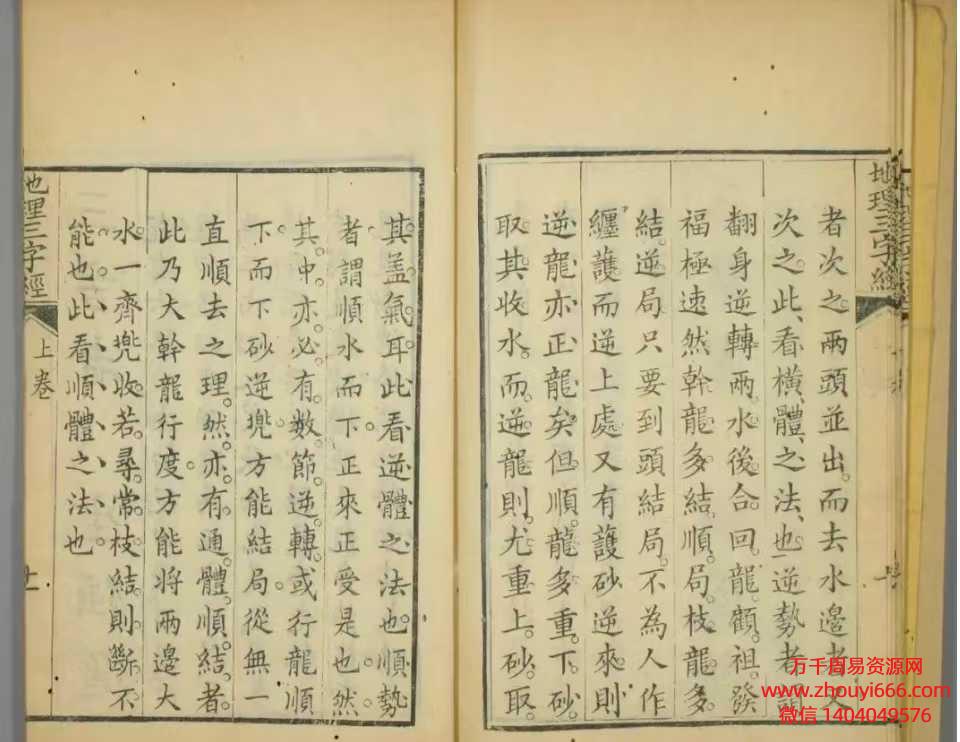 地理三字經
者次之兩頭並出而去水邊者又
次之此看橫體之法也逆勢者謂
翻身逆轉兩水後合回龍顧祖發
福極速然幹龍多結順局枝龍多
結逆局只要到頭結局不為人作
纏護而逆上處又有護砂逆來則
逆龍亦正龍矣但順龍多重下砂
取其收水而逆龍則尤重上砂取
其盖氣耳此看逆體之法也順勢
者謂順水而下正來正受是也然
其中亦必有數節逆轉或行龍順
下而下砂逆兜方能結局從無一
直順去之理然亦有通體順結者
此乃大幹龍行度方能將兩邊大
水一齊兜收若尋常枝結則斷不
能也此看順體之法也
地理三字經
上卷
十一
万千周易资源网
www.zhouyi666.com
微信 1404049576